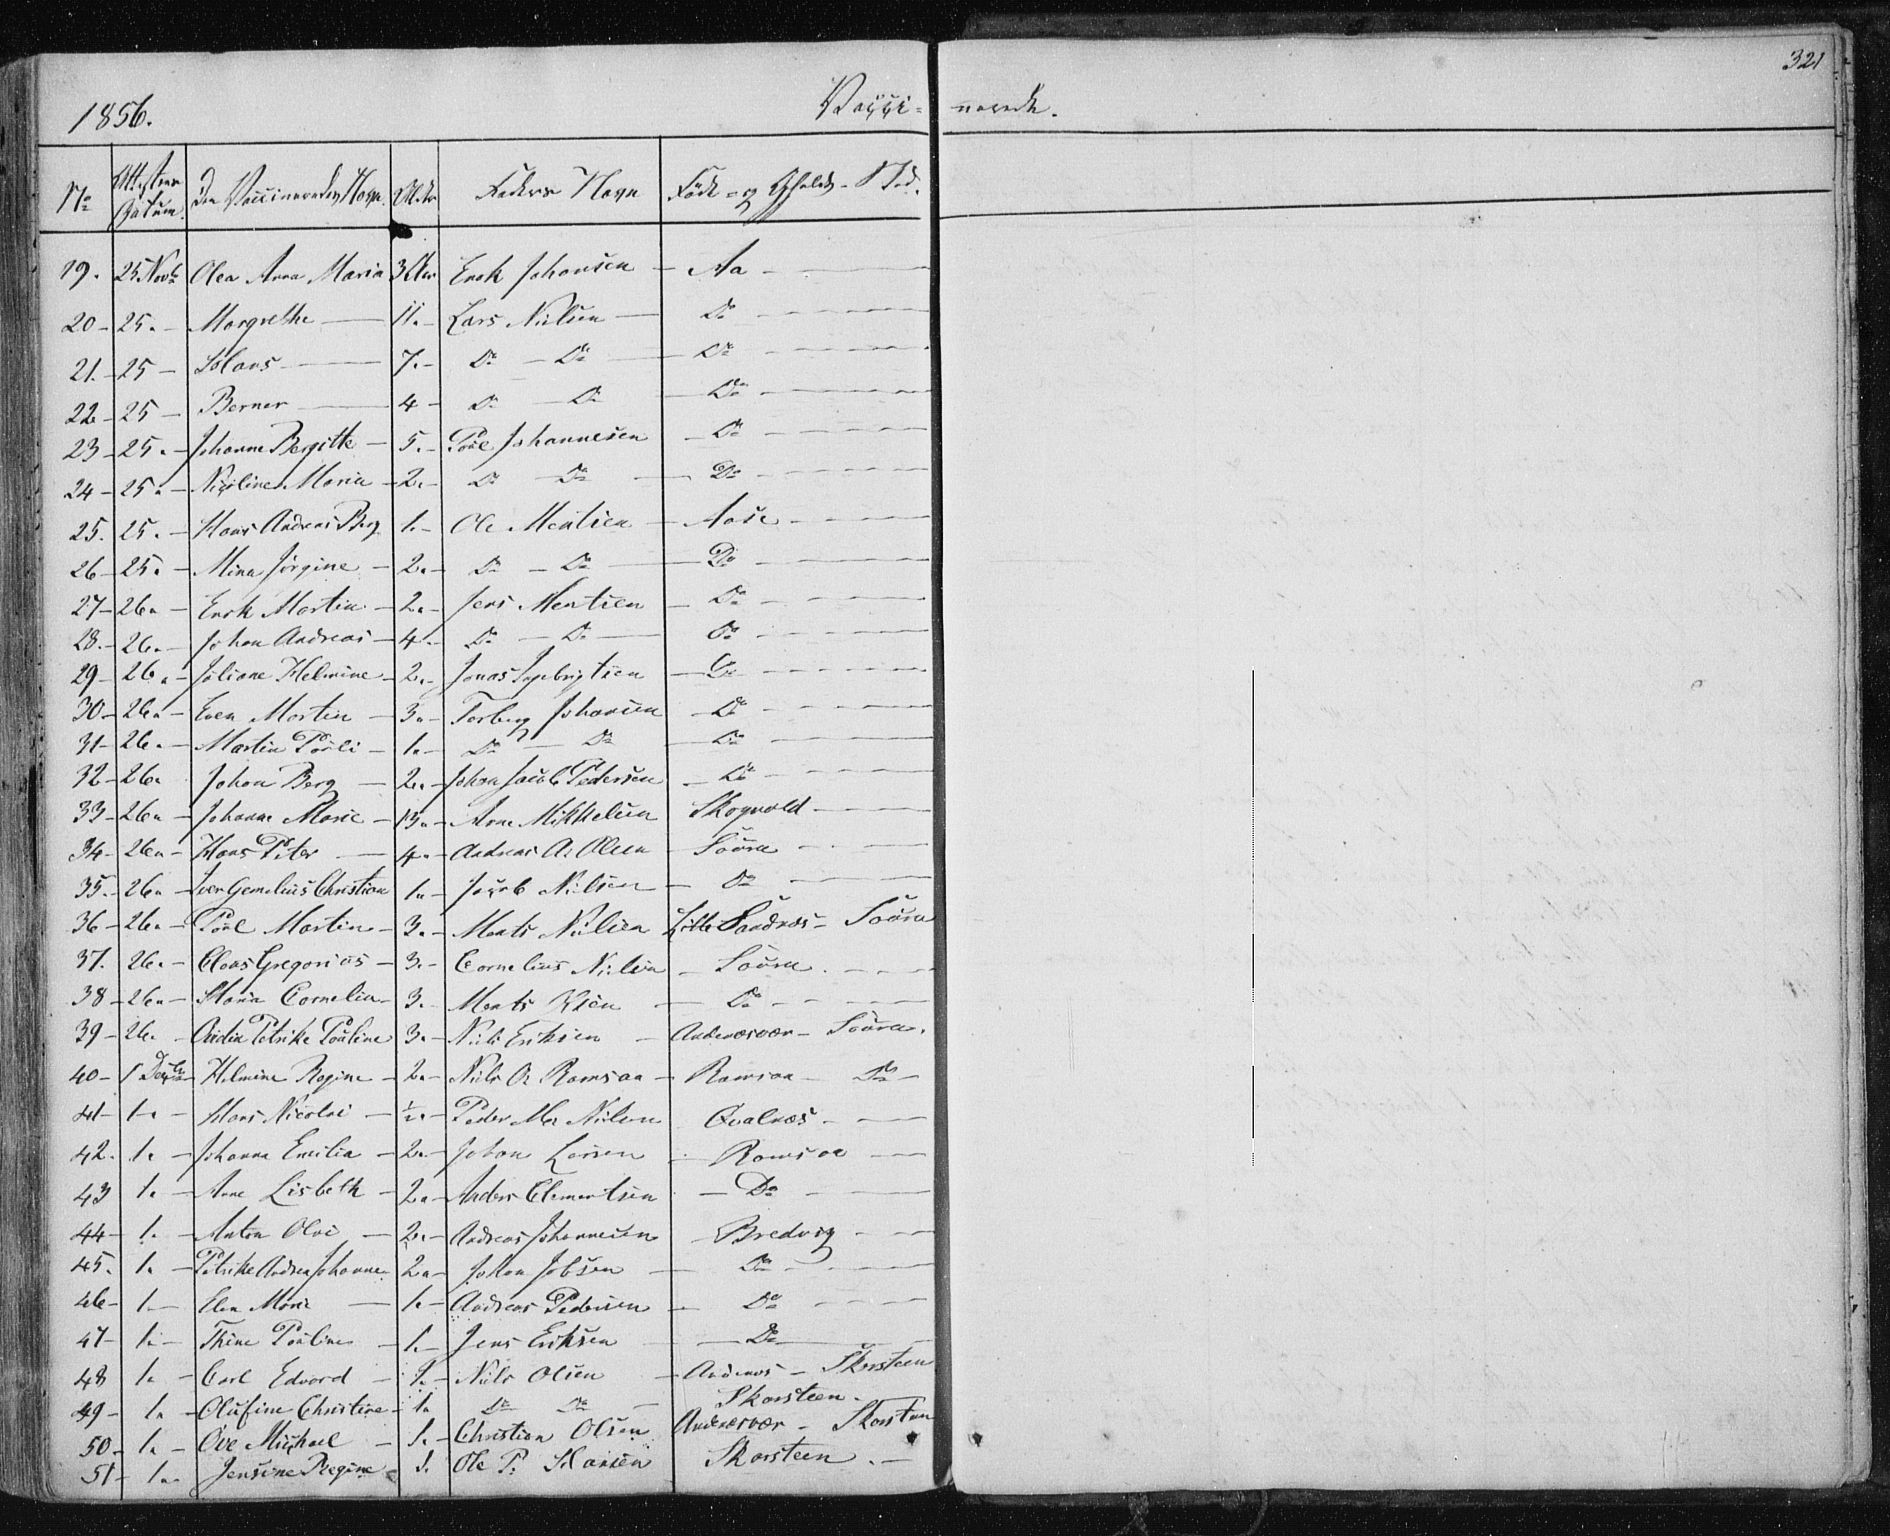 321
1856. Vacci- nerede.
No Attestens Datum. Den Vaccineredes Navn. Alder Faders Navn Føde- og Opholds-Sted.
19. 25 Novb Olea Anna Maria 3 Erik Johansen - Aa -
20 - 25. - Margrethe 11. - Lars Nielsen - Do
21. - 25 - Hans 7. - Do - Do Do
22 - 25 - Berner 4 - Do - Do Do
23 - 25. - Johanne Bergitte - 5. - Poul Johannesen - Do
24 - 25. - Nicoline Maria - 2. - Do Do - Do
25. 25. - Hans Andreas Berg 1. - Ole Mentsen - Aase -
26 - 25. - Mina Jørgine - 2. - Do - Do Do
27 - 26. - Erik Martin - 2. - Jens Mentsen - Do
28. - 26. - Johan Andreas - 4. - Do - Do - Do
29 - 26. - Juliane Helmine - 2. - Jonas Ingebrigtsen - Do
30 - 26. - Even Martin - 3. - Torberg Johansen - Do
31 - 26. - Martin Pouli - 1. - Do - Do - Do
32 - 26. Johan Berg - 2. - Johan Jacob Pedersen - Do
33 - 26. - Johanne Marie - 13. - Arne Mikkelsen Skogvold -
34 - 26. - Hans Peter - 4. - Andreas A. Olsen - Soura -
35. - 26. - Iver Gemelius Christian 1. - Jacob Nielsen - Do
36 - 26. - Poul Martin - 3. - Ments Nielsen Lille Sandnæs - Soura
37. 26. - Claus Gregorius - 3. - Cornelius Nielsen - Soura. -
38 - 26. - Maria Cornelia - 3. - Ments - Do -
39 - 26. - Ovidia Petrike Pouline 3. - Niels Eriksen - Andenæsvær - Soura.
40 - 1 Decbr - Helmine Regine - 2. - Niels O. Ramsaa - Ramsaa - Do -
41 - 1. - Hans Nicolai - ½. - Peder Nielsen Qvalnæs -
42. 1. - Johanna Emilia - 2. - Johan Larsen - Ramsaa -
43 1. - Anne Lisbeth - 2. - Anders Clementsen - Do -
44 - 1. - Anton Olai - 2. - Andreas Johannesen - Bredvig -
45. 1. - Petrike Andrea Johanne 2. - Johan Jobsen - Do -
46 - 1. - Elen Marie - 1. - Andreas Pedersen - Do -
47 - 1. - Thine Pouline - 1. - Jens Eriksen - Do
48 1. - Carl Edvard - 1. - Niels Olsen - Andenæs - Skarsteen
49 - 1. - Olufine Christine - 1. Do Do - Skarsteen -
50 - 1. - Ove Michael - 1. - Christian Olsen Andenæsvær - Skarsteen
51 - 1. - Jensine Regine 1. Ole P. Hansen Skarsteen. -